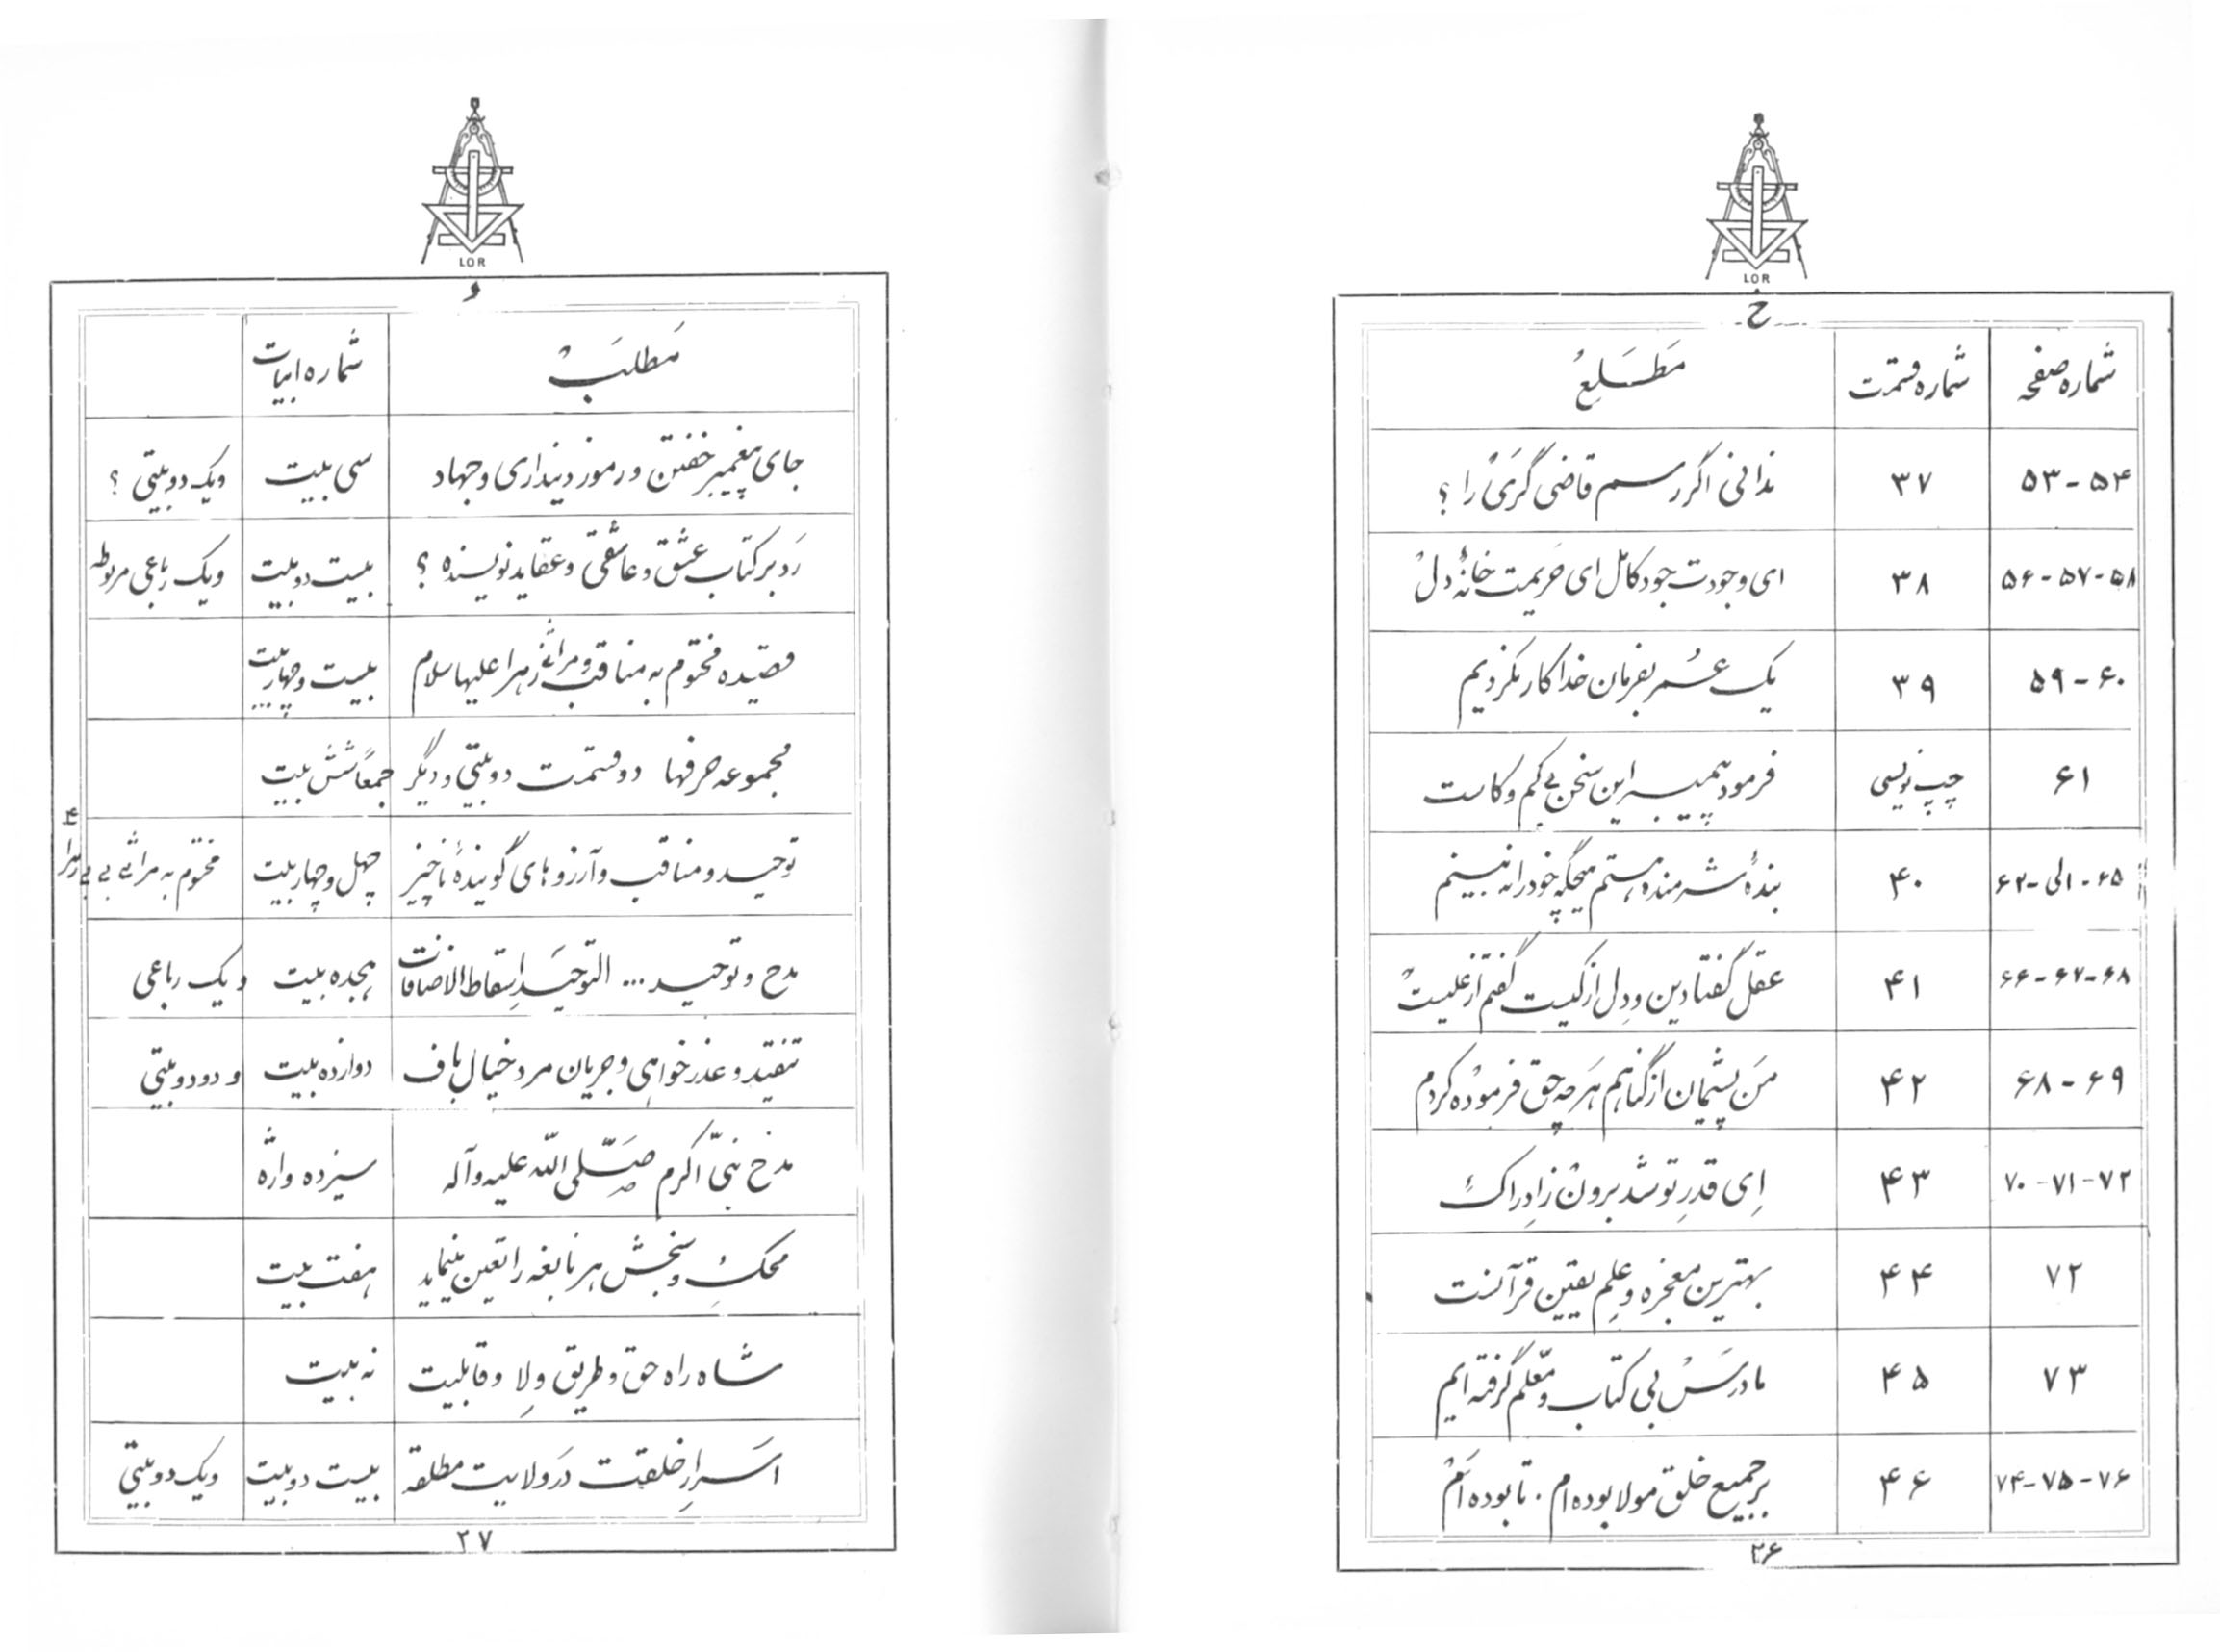 LOR
ح
شماره صفحه شماره قسمت مَطلَعِ
۵۳-۵۴ ۳۷ ندانی اگر رسم قاضی گری را ؟
۵۶-۵۷-۵۸ ۳۸ ای وجودت جود کامل ای حریمت خانهٔ دل
۵۹-۶۰ ۳۹ یک عُمر بفرمان خدا کار نکردیم
۶۱ چپ نویسی فرمود پیمبر این سخن بی کم و کاست
۶۲-الی-۶۵ ۴۰ بندهٔ شرمنده هستم هیچگه خود را نبینم
۶۶-۶۷-۶۸ ۴۱ عقل گفتا دین و دِل از کیست گفتم از علیست
۶۸-۶۹ ۴۲ مَن پشیمان از گناهم هَر چه حق فرموده کردم
۷۰-۷۱-۷۲ ۴۳ اِی قدرِ تو شد برون زِ ادراک
۷۲ ۴۴ بهترین معجزه و علِم یقین قرآنست
۷۳ ۴۵ ما درس بی کتاب و معّلم گرفته ایم
۷۴-۷۵-۷۶ ۴۶ بر جمیع خلق مولا بوده ام . تا بوده اَم
۲۶
LOR
مَطلَبْ شماره ابیات
جای پیغمبر خفتن و رموز دینداری و جهاد سی بیت و یک دوبیتی ؟
رَد بر کتاب عشق و عاشقی و عقاید نویسنده ؟ بیست دو بیت و یک رباعی مربوطه
قصیّده مختوم به مناقب و مراثی زهرا علیها سلام بیست و چهار بیت
مجموعه حرفها دو قسمت دوبیتی و دیگر جمعاً شش بیت
توحید و مناقب و آرزوهای گویندهٔ ناچیز چهل و چهار بیت مختوم به مراثی بی بی زهرا
مدح و توحید ... التوحید اِسقاط الاضافات هجده بیت و یک رباعی
تنقید و عذرخواهی و جریان مرد خیال باف دوازده بیت و دو دوبیتی
مدح نبیّ اکرم صَلّی الله علیه و آله سیزده واژه
محک و سنجش هر نابغه را تعین مینماید هفت بیت
شاه راه حق و طریق وِلا و قابلیت نه بیت
اَسرارِ خلقت دَر ولایت مطلقه بیست دو بیت و یک دوبیتی
۲۷